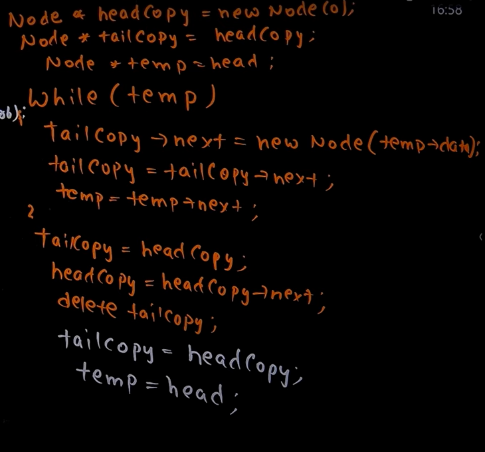 Node * headCopy = new Node(0);
16:58
Node * tailCopy = headCopy;
Node * temp = head;
While (temp)
tailCopy->next = new Node(temp->data);
tailCopy = tailCopy->next;
temp = temp->next;
}
tailCopy = headCopy;
headCopy = headCopy->next;
delete tailcopy;
tailcopy = headCopy;
temp = head;